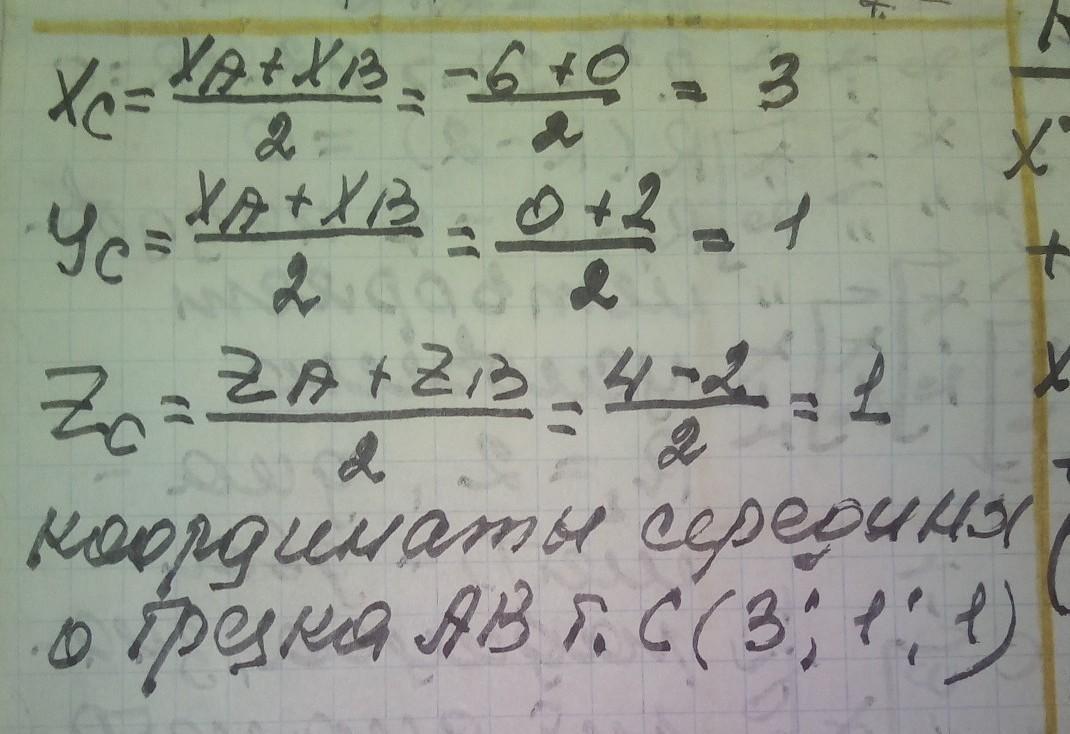 Xc = XA + XB / 2 = -6 + 0 / 2 = 3
Yc = XA + XB / 2 = 0 + 2 / 2 = 1
Zc = ZA + ZB / 2 = 4 - 2 / 2 = 1
координаты середины
отрезка AB т. C (3; 1; 1)